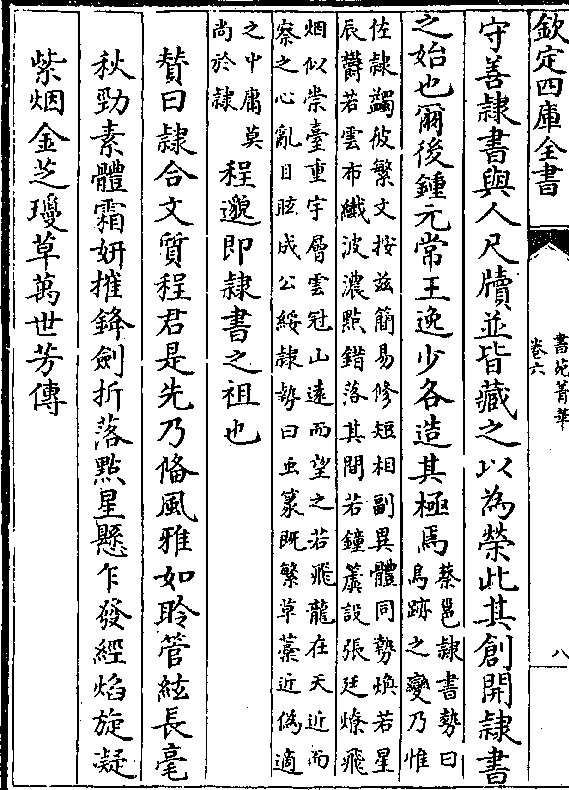 欽定四庫全書
書苑菁華
卷六
八
守善隸書與人尺牘並皆藏之以為榮此其創開隸書
之始也爾後鍾元常王逸少各造其極焉
蔡邕隸書勢曰
鳥跡之變乃惟
佐隸蠲彼繁文按兹簡易修短相副異體同勢煥若星
辰鬱若雲布纖波濃點錯落其間若鐘簴設張廷燎飛
烟似崇臺重宇層雲冠山遠而望之若飛龍在天近而
察之心亂目眩成公綏隸勢曰虫篆既繁草藁近偽適
之中庸莫
尚於隸
程邈即隸書之祖也
賛曰隸合文質程君是先乃備風雅如聆管絃長毫
秋勁素體霜妍摧鋒劍折落點星懸乍發經焰旋凝
紫烟金芝瓊草萬世芳傳